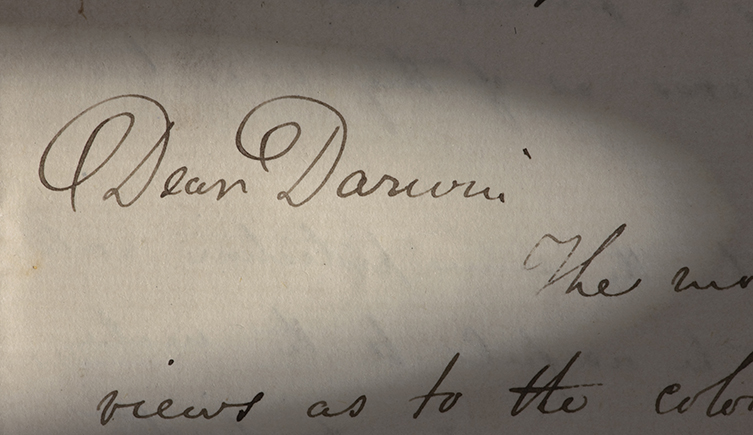 Dear Darwin
The mo
views as to the colo